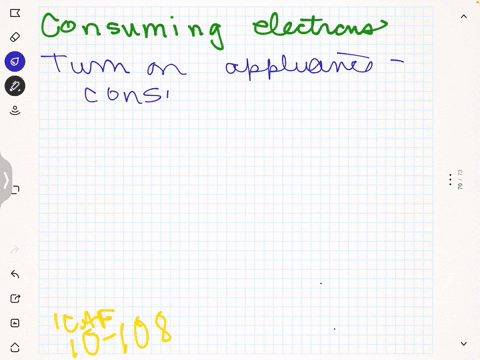 Consuming electrons
Turn on appliance -
cons
ICAF
10-108
70 / 73